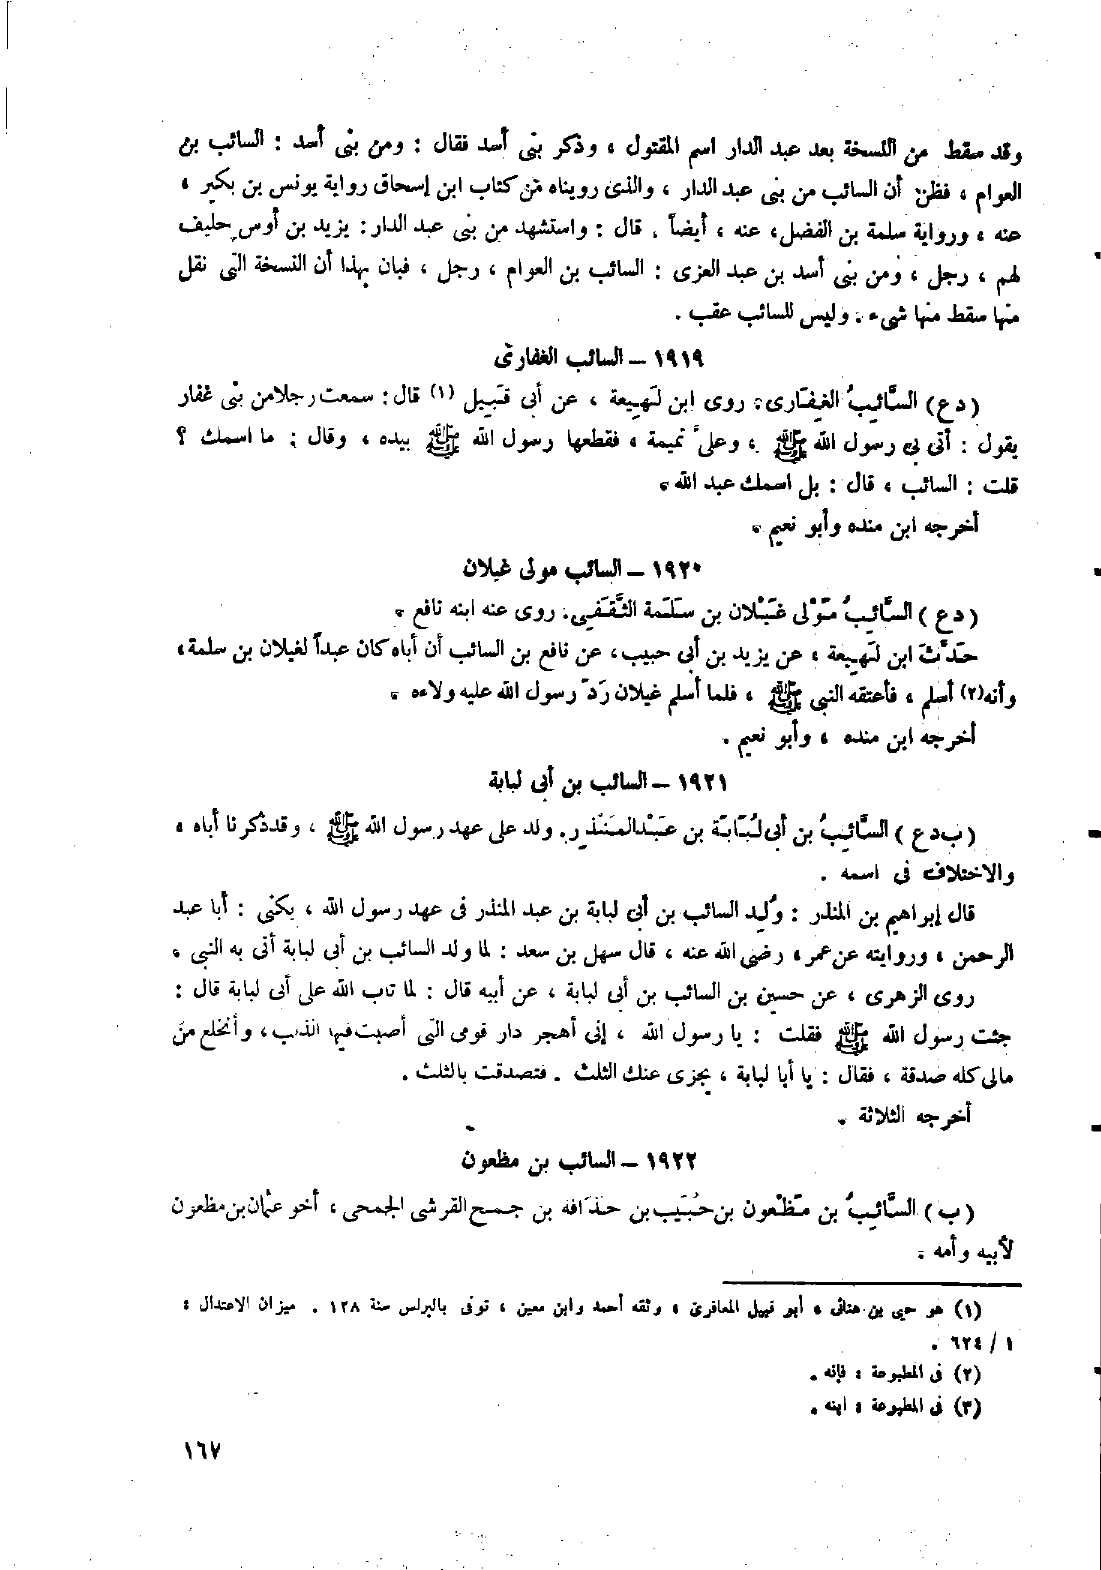 وقد سقط من النسخة بعد عبد الدار اسم المقتول ، وذكر بنى أسد فقال : ومن بنى أسد : السائب بن
العوام ، فظن أن السائب من بنى عبد الدار ، والذى رويناه من كتاب ابن إسحاق رواية يونس بن بكير ،
عنه ، ورواية سلمة بن الفضل، عنه ، أيضاً . قال : واستشهد من بنى عبد الدار : يزيد بن أوس حليف
لهم ، رجل ، ومن بنى أسد بن عبد العزى : السائب بن العوام ، رجل ، فبان بهذا أن النسخة التى نقل
منها سقط منها شىء . وليس للسائب عقب .
١٩١٩ – السائب الغفارى
( د ع ) السَّائِبُ الغِفَارى . روى ابن لَهِيعة ، عن أبى قَبِيل (١) قال : سمعت رجلا من بنى غفار
يقول : أتى بى رسول الله ﷺ ، وعلىَّ تميمة ، فقطعها رسول الله ﷺ بيده ، وقال : ما اسمك ؟
قلت : السائب ، قال : بل اسمك عبد الله .
أخرجه ابن منده وأبو نعيم .
١٩٢٠ – السائب مولى غيلان
( د ع ) السَّائِبُ مَوْلى غَيْلان بن سَلَمَة الثَّقَفِي . روى عنه ابنه نافع .
حَدَّثَ ابن لَهِيعة ، عن يزيد بن أبى حبيب ، عن نافع بن السائب أن أباه كان عبداً لغيلان بن سلمة ،
وأنه(٢) أسلم ، فأعتقه النبى ﷺ ، فلما أسلم غيلان رَدّ رسول الله عليه ولاءه .
أخرجه ابن منده ، وأبو نعيم .
١٩٢١ – السائب بن أبى لبابة
( ب د ع ) السَّائِبُ بن أبى لُبَابَة بن عَبْد المُنْذِر . ولد على عهد رسول الله ﷺ ، وقد ذكرنا أباه ،
والاختلاف فى اسمه .
قال إبراهيم بن المنذر : وُلِد السائب بن أبى لبابة بن عبد المنذر فى عهد رسول الله ، يكنى : أبا عبد
الرحمن ، وروايته عن عمر ، رضى الله عنه ، قال سهل بن سعد : لما ولد السائب بن أبى لبابة أتى به النبى .
روى الزهرى ، عن حسين بن السائب بن أبى لبابة ، عن أبيه قال : لما تاب الله على أبى لبابة قال :
جئت رسول الله ﷺ فقلت : يا رسول الله ، إنى أهجر دار قومى التى أصبت فيها الذنب ، وأنخلع من
مالى كله صدقة ، فقال : يا أبا لبابة ، يجزى عنك الثلث . فتصدقت بالثلث .
أخرجه الثلاثة .
١٩٢٢ – السائب بن مظعون
( ب ) السَّائِبُ بن مَظْعون بن حُبَيب بن حذافه بن جمح القرشى الجمحى ، أخو عثمان بن مظعون
لأبيه وأمه .
(١) هو حيى بن هانىء ، أبو قبيل المعافرى ، وثقه أحمد وابن معين ، توفى بالبرلس سنة ١٢٨ . ميزان الاعتدال :
١ / ٦٢٤ .
(٢) فى المطبوعة : فإنه .
(٣) فى المطبوعة : ابنه .
١٦٧